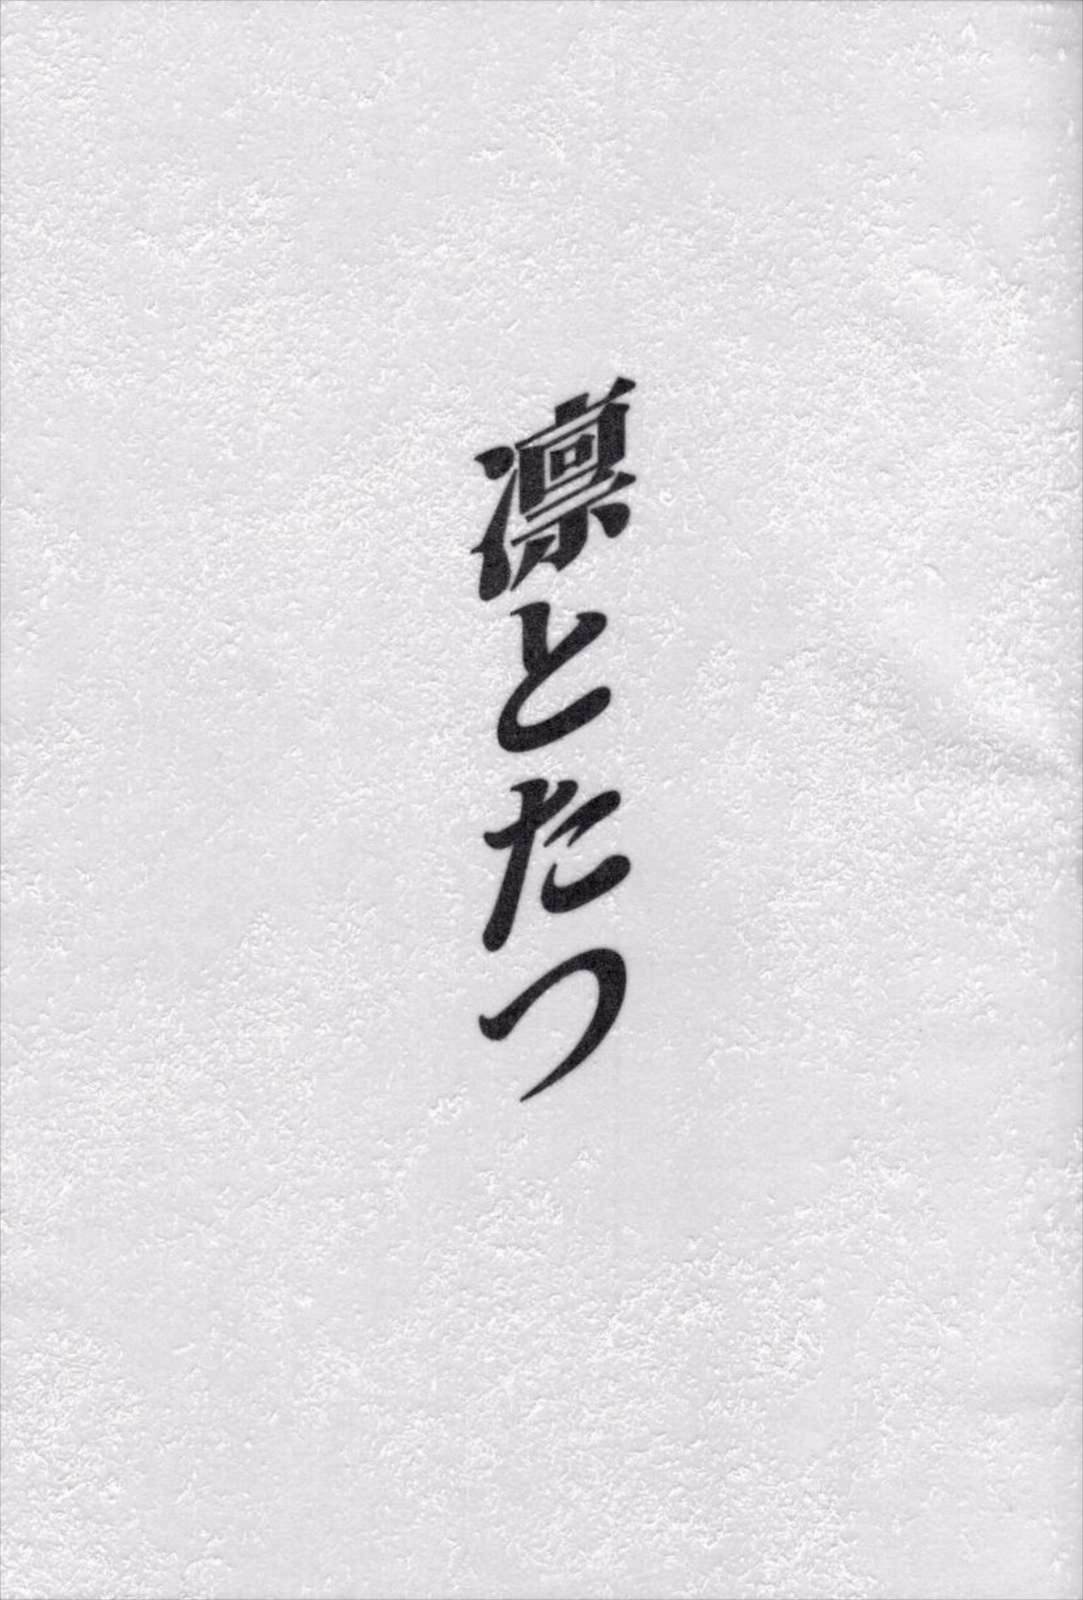 凛とたつ